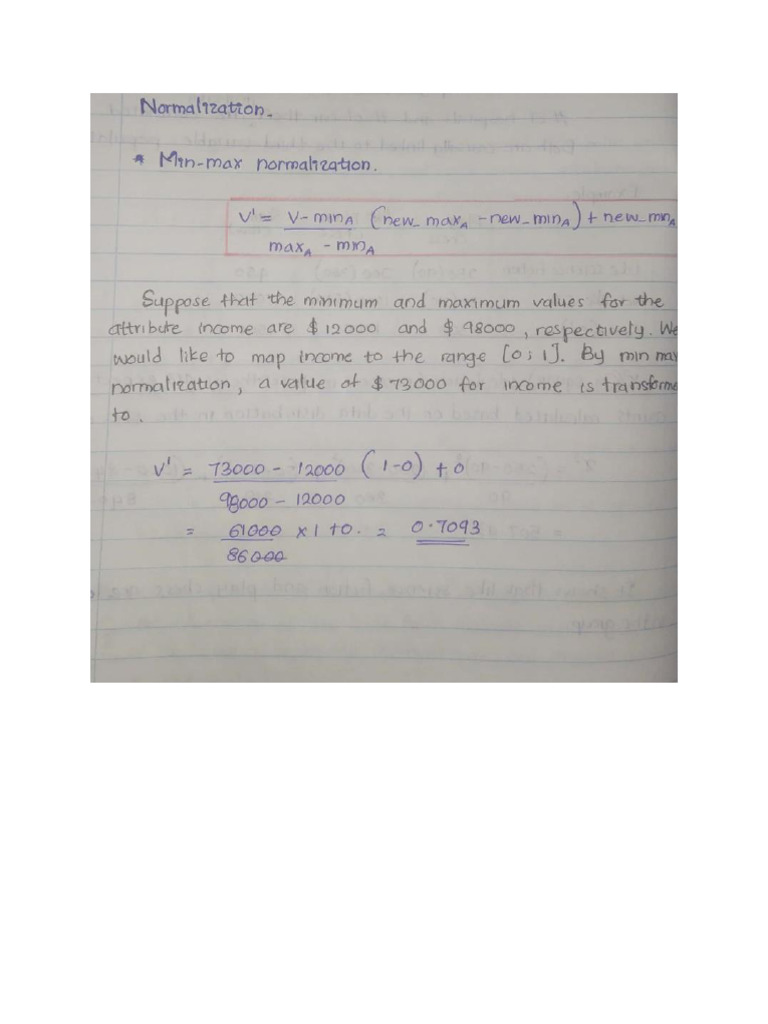 Normalization.
* Min-max normalization.
V' = V - minA (new_ maxA - new_ minA) + new_ mnA
maxA - mnA
Suppose that the minimum and maximum values for the
attribute income are $ 12000 and $ 98000, respectively. We
would like to map income to the range [0 ; 1]. By min max
normalization, a value of $ 73000 for income is transforme
to.
V' = 73000 - 12000 (1-0) + 0
98000 - 12000
= 61000 x 1 + 0. = 0.7093
86000